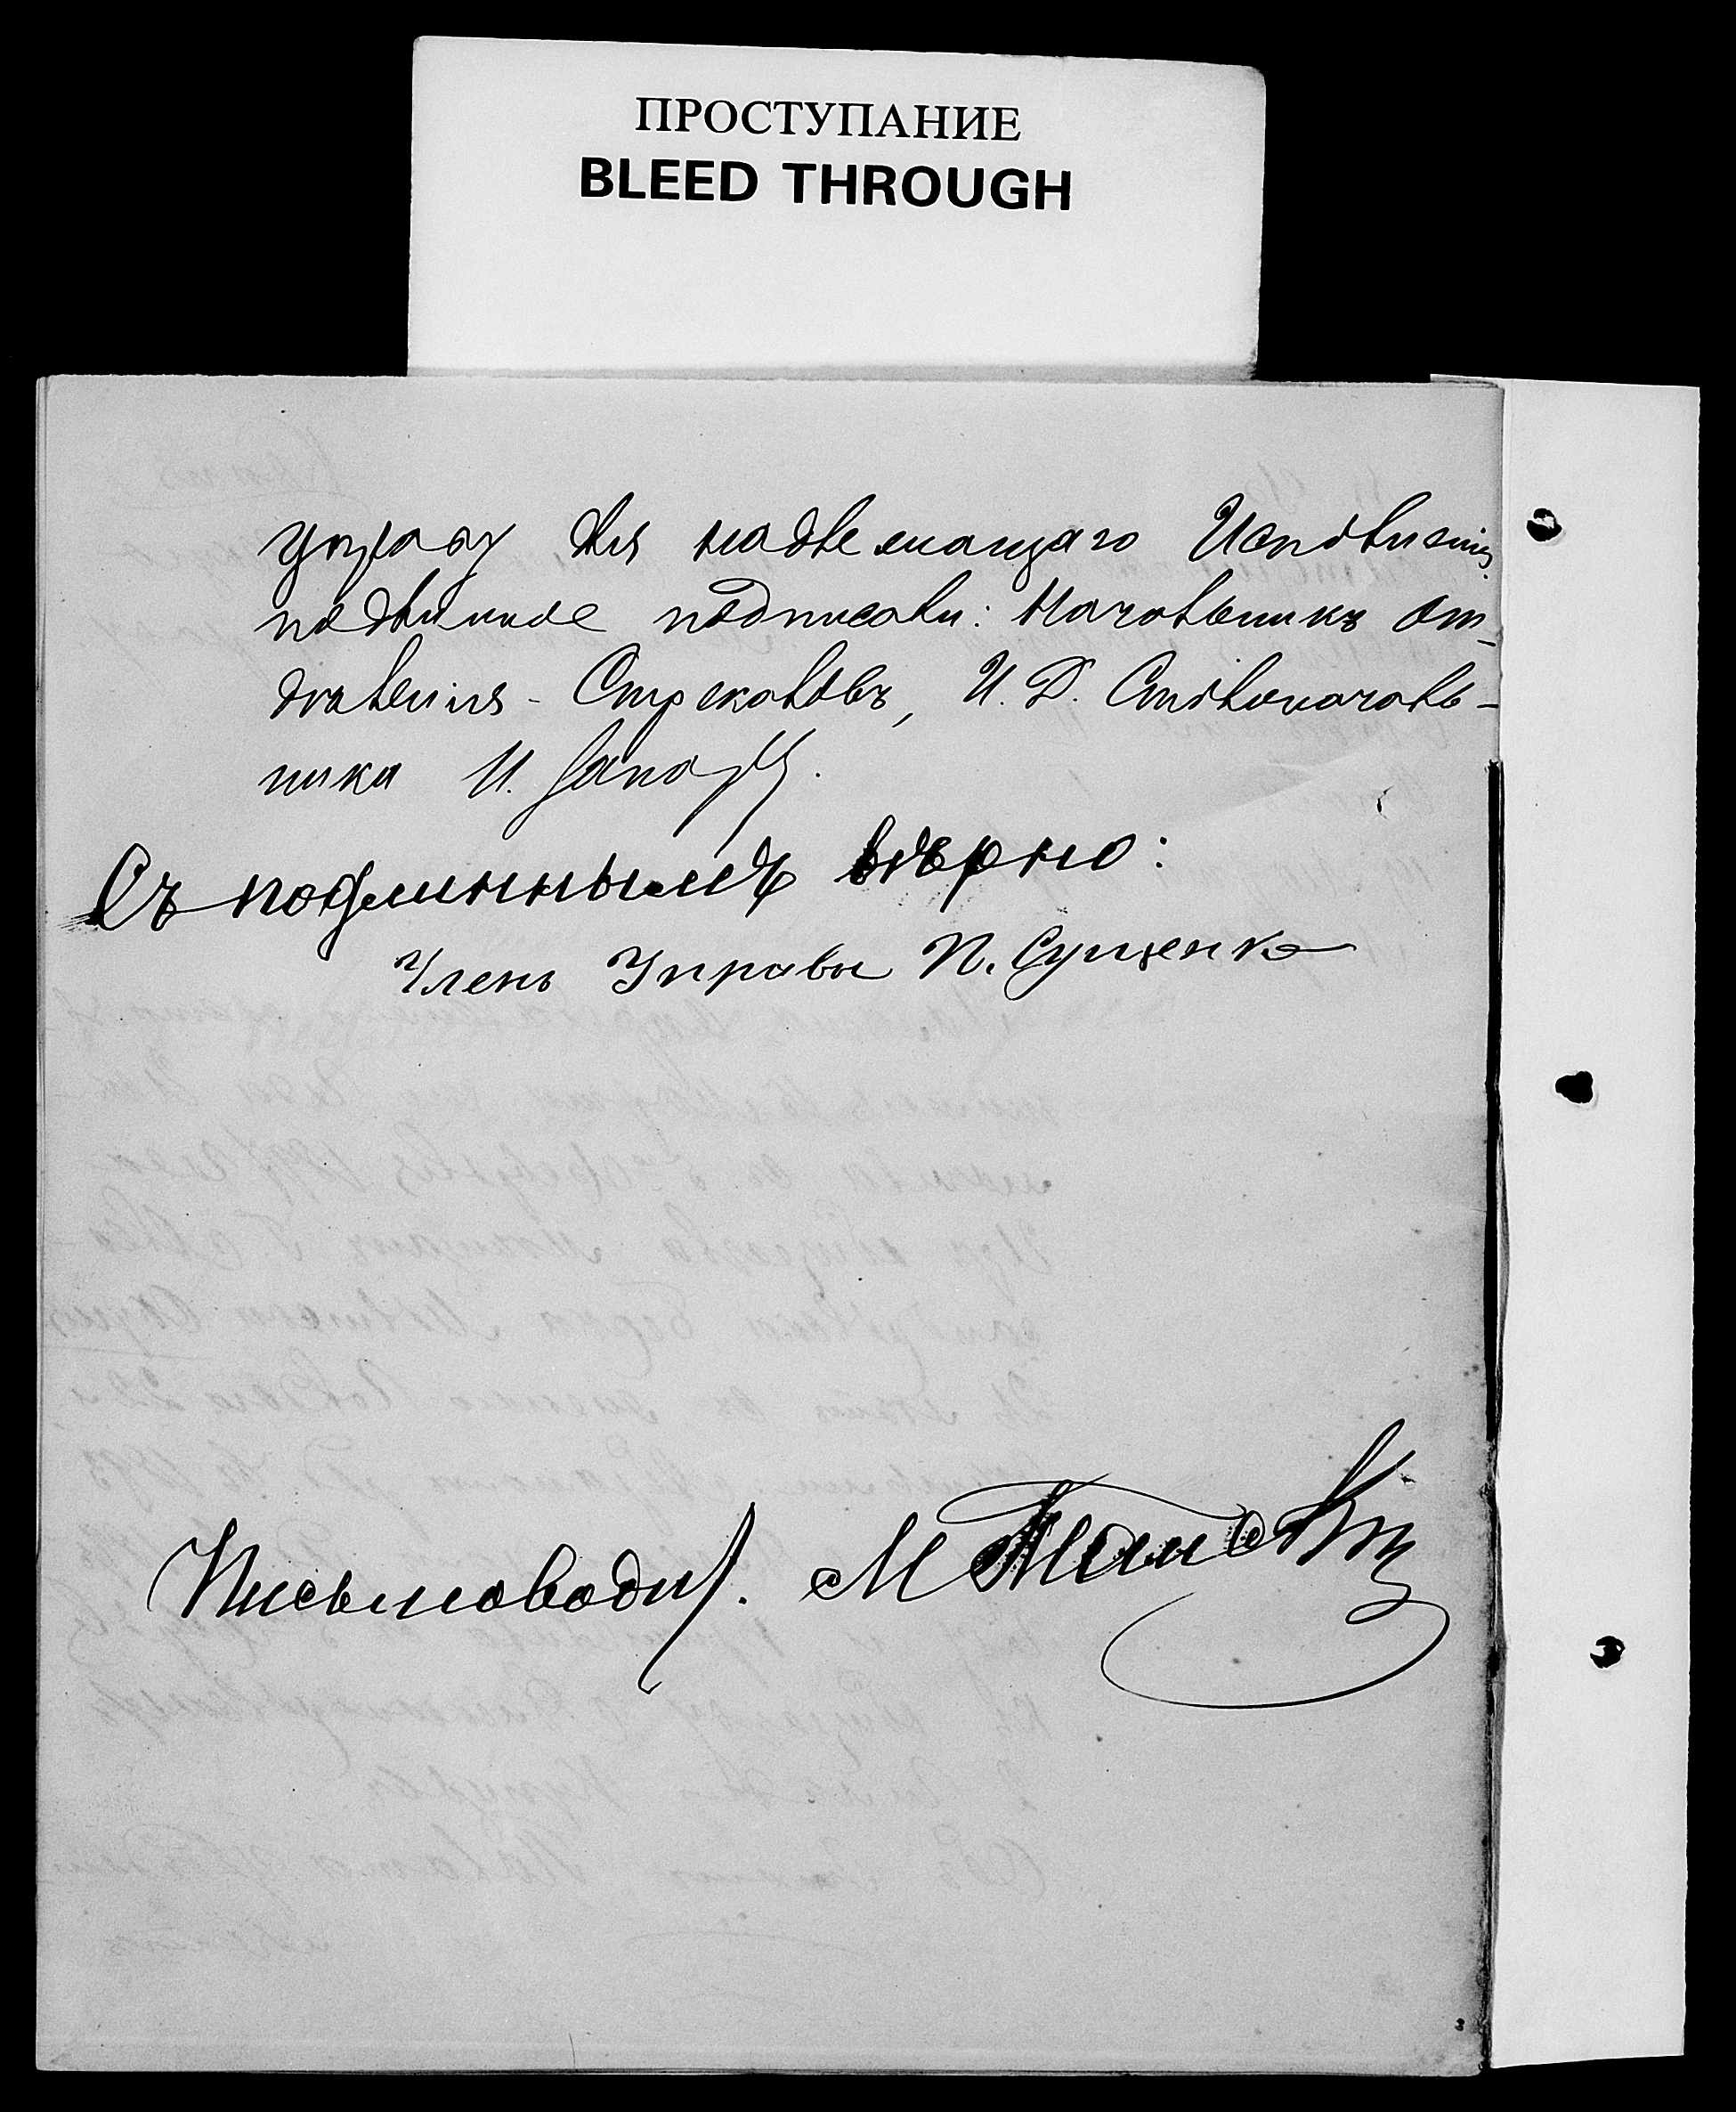 ПРОСТУПАНИЕ
BLEED THROUGH
управу для надлежащаго Исполненія
подлинное подписали: Начальникъ От-
дѣленія - Стрекаловъ, И. Д. Столоначаль-
ника И.
Съ подлиннымъ вѣрно:
Членъ Управы П. Сущенко
Письмоводит. М